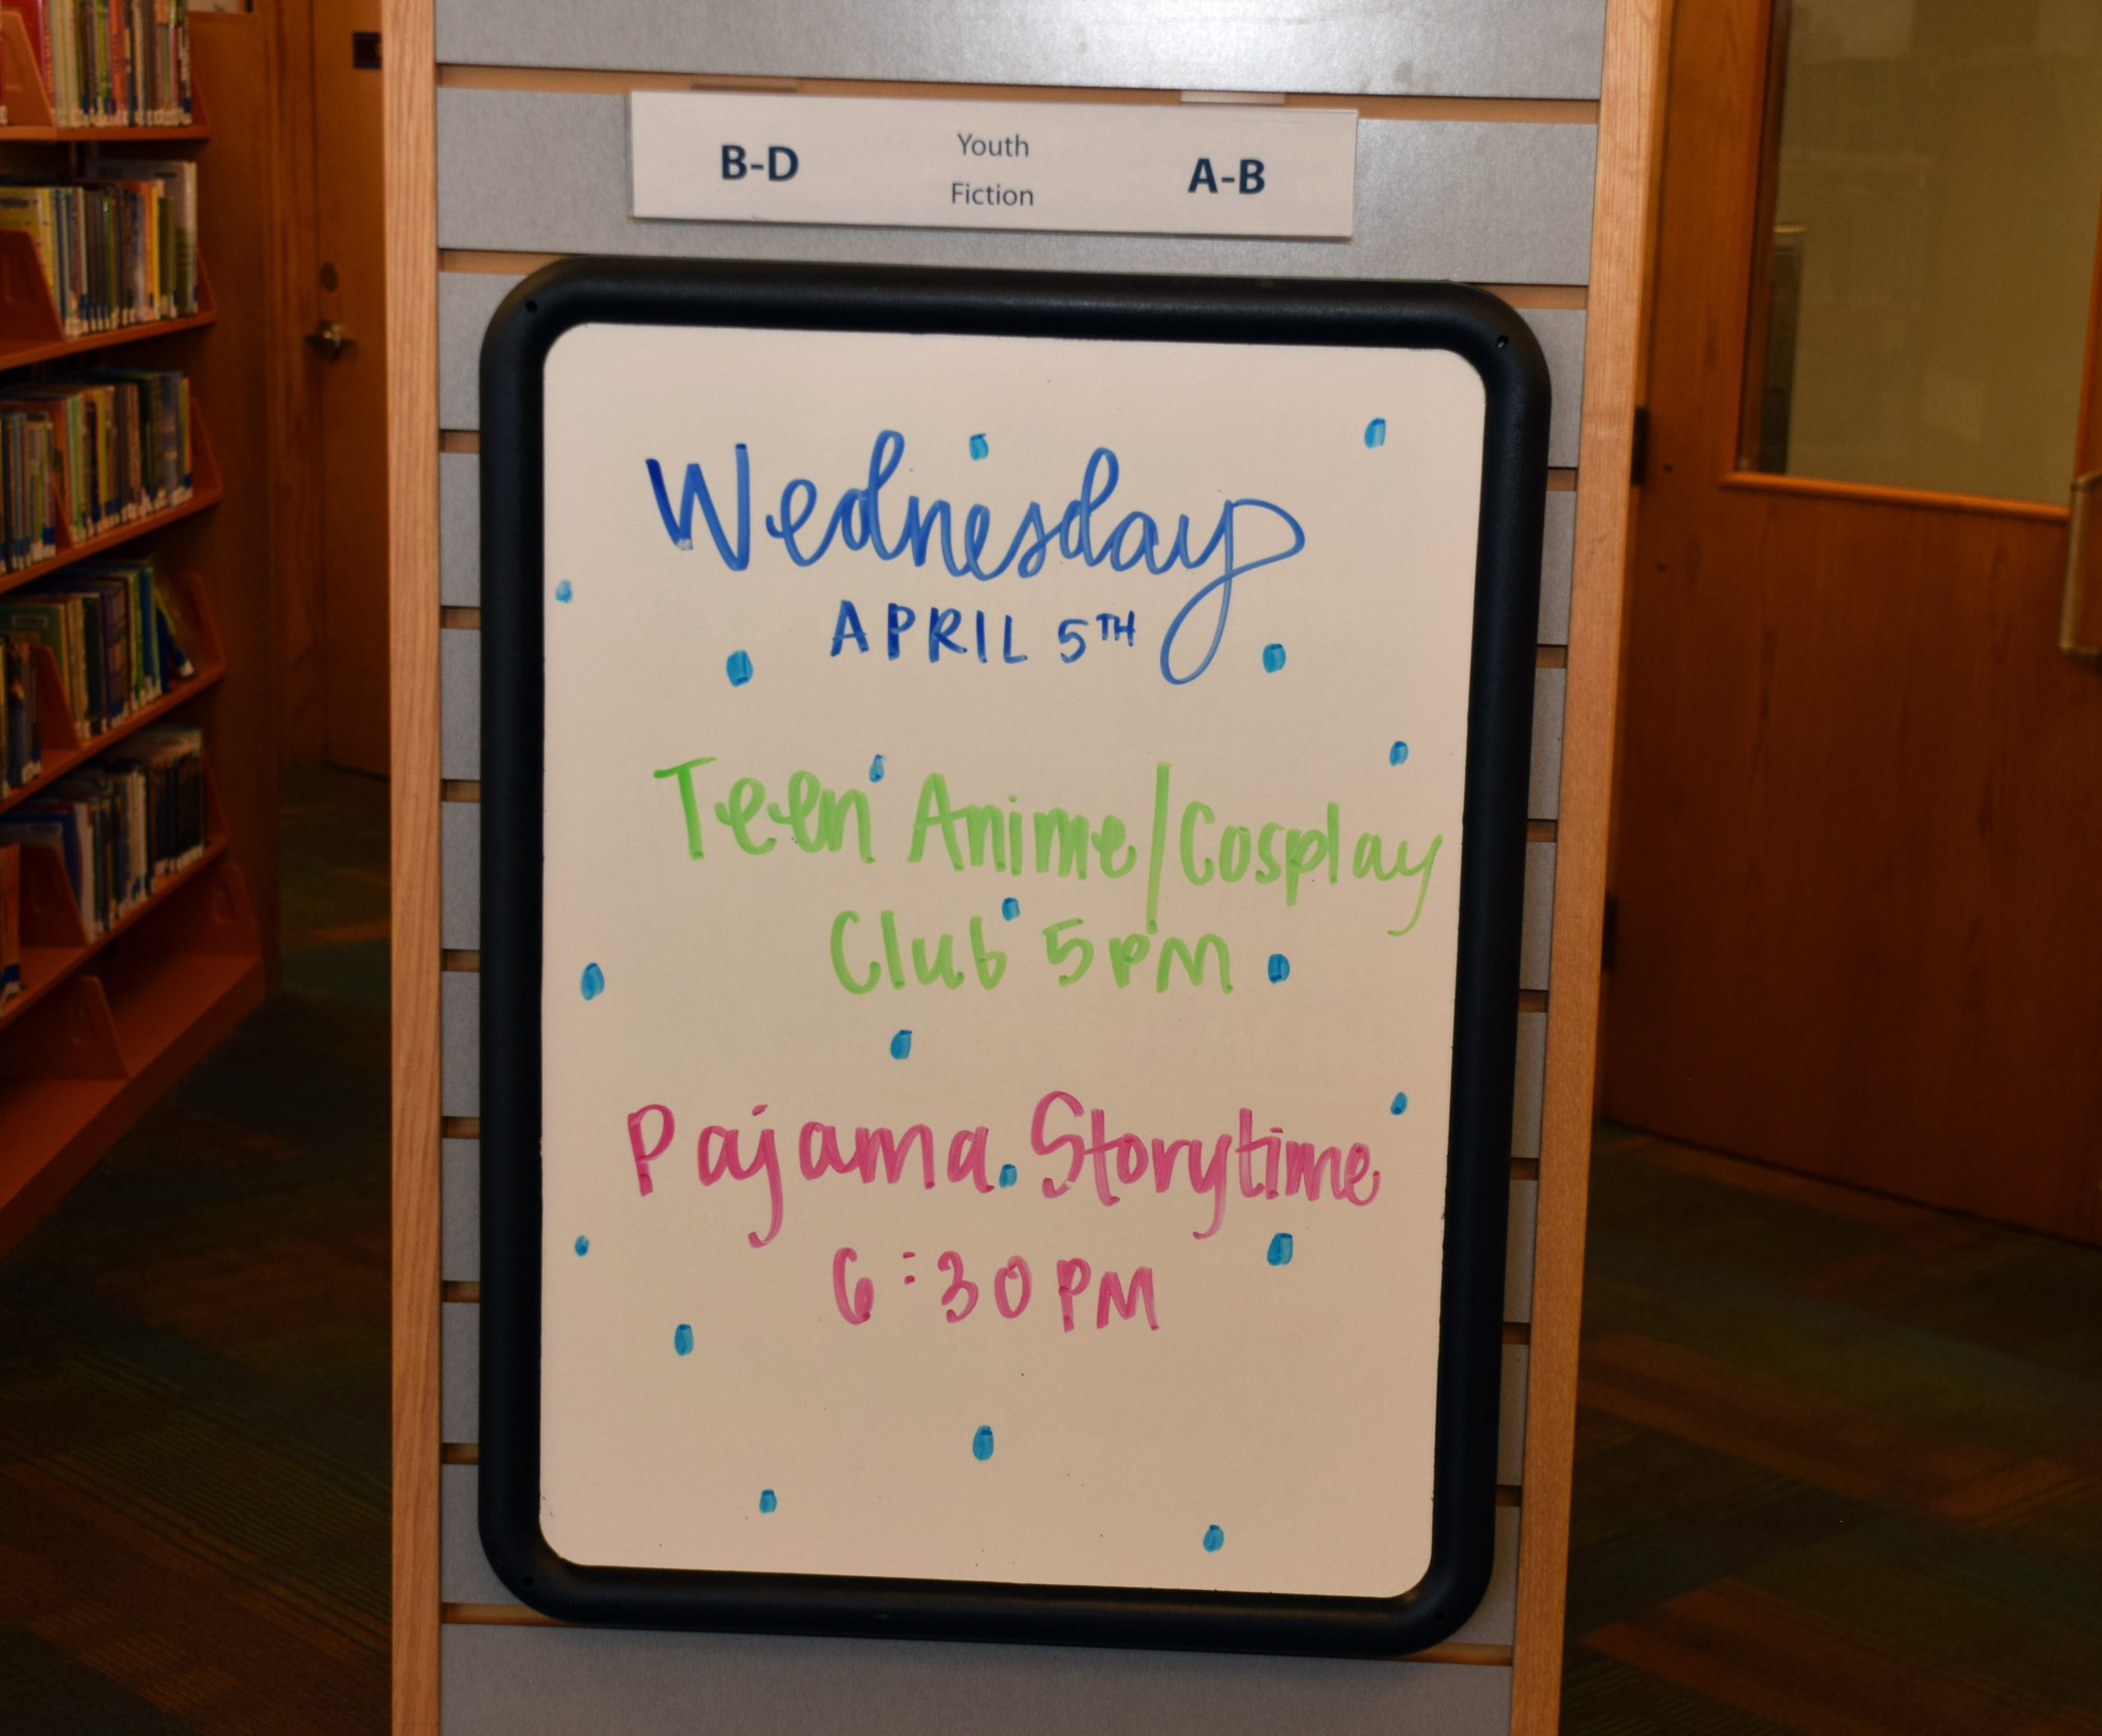 B-D Youth Fiction A-B
Wednesday
APRIL 5TH
Teen Anime/Cosplay
Club 5PM
Pajama Storytime
6:30 PM